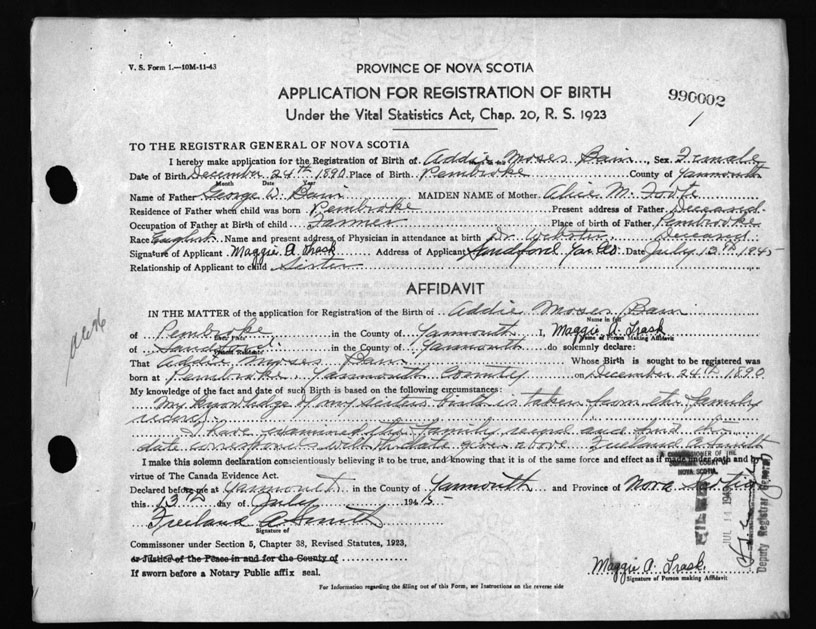 V. S. Form 1.—10M-11-43
PROVINCE OF NOVA SCOTIA
APPLICATION FOR REGISTRATION OF BIRTH
990002
Under the Vital Statistics Act, Chap. 20, R. S. 1923
1
TO THE REGISTRAR GENERAL OF NOVA SCOTIA
I hereby make application for the Registration of Birth of Addie Moses Bain, Sex Female
Date of Birth December 24th 1890 Place of Birth Pembroke County of Yarmouth
Month Date Year
Name of Father George W. Bain MAIDEN NAME of Mother Alice M. Foote
Residence of Father when child was born Pembroke Present address of Father Deceased
Occupation of Father at Birth of child Farmer Place of birth of Father Pembroke
Race English Name and present address of Physician in attendance at birth Dr Webster Deceased
Signature of Applicant Maggie A. Trask Address of Applicant Sandford, Yar. Co. Date July 13th 1945
Relationship of Applicant to child Sister
AFFIDAVIT
IN THE MATTER of the application for Registration of the Birth of Addie Moses Bain
Name in full
of Pembroke in the County of Yarmouth I, Maggie A. Trask
Name of Person Making Affidavit
of Sandford in the County of Yarmouth do solemnly declare:
Present Residence
That Addie Moses Bain Whose Birth is sought to be registered was
born at Pembroke Yarmouth County on December 24th 1890
My knowledge of the fact and date of such Birth is based on the following circumstances:
My knowledge of my sisters birth is taken from the family
record
I have examined the family record and find the
date corresponds with the date given above Freeland A. Smith
A COMMISSIONER OF THE
SUPREME COURT OF
NOVA SCOTIA
I make this solemn declaration conscientiously believing it to be true, and knowing that it is of the same force and effect as if made under oath and by
virtue of The Canada Evidence Act.
Declared before me at Yarmouth in the County of Yarmouth and Province of Nova Scotia
this 13th day of July 1945
Freeland A. Smith
Signature of
Commissioner under Section 5, Chapter 38, Revised Statutes, 1923,
or Justice of the Peace in and for the County of
If sworn before a Notary Public affix seal.
FILED
Deputy Registrar General
Maggie A. Trask
Signature of Person making Affidavit
For Information regarding the filling out of this Form, see Instructions on the reverse side